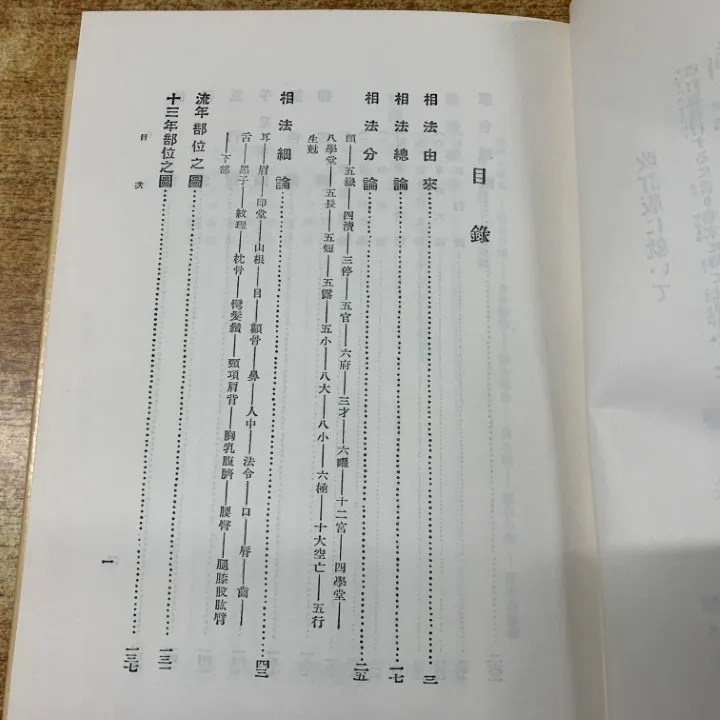 目錄
相法由來………三
相法總論………一七
相法分論………二五
頭——五嶽——四瀆——三停——五官——六府——三才——六曜——十二宮——四學堂——
八學堂——五長——五短——五露——五小——八大——八小——六極——十大空亡——五行
生尅
相法細論………四三
耳——眉——印堂——山根——目——顴骨——鼻——人中——法令——口——脣——齒——
舌——黑子——紋理——枕骨——鬢髮鬚——頸項肩背——胸乳腹臍——腰臀——腿膝股肱臂
——下部
流年部位之圖………一三一
十三年部位之圖………一三七
目次
一
改訂版に就いて